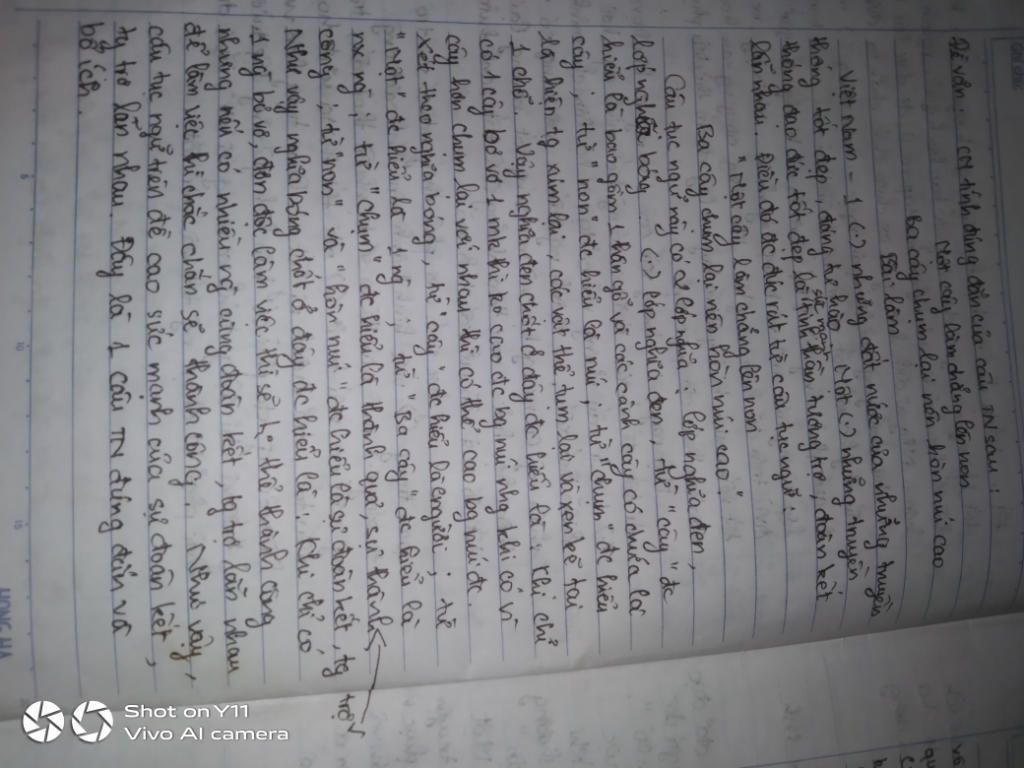 Đề văn: CM tính đúng đắn của câu TN sau:
Một cây làm chẳng lên non
Ba cây chụm lại nên hòn núi cao
Bài làm
Việt Nam - 1 (.) những đất nước của những truyền
thống tốt đẹp, đáng tự hào. Một (.) những truyền
thống đạo đức tốt đẹp là tinh thần tương trợ, đoàn kết
lẫn nhau. Điều đó đc đúc rút từ câu tục ngữ:
"Một cây làm chẳng lên non
Ba cây chụm lại nên hòn núi cao"
Câu tục ngữ này có 2 lớp nghĩa: lớp nghĩa đen,
lớp nghĩa bóng. (.) lớp nghĩa đen, từ "cây" đc
hiểu là bao gồm 1 thân gỗ và các cành cây có chứa lá
cây, từ "non" đc hiểu là núi, từ "chụm" đc hiểu
là hiện tg túm lại, các vật thể túm lại và xen kẽ tại
1 chỗ. Vậy nghĩa đen chốt ở đây đc hiểu là: Khi chỉ
có 1 cây bơ vơ 1 mk thì ko cao đc bg núi nhg khi có 3
cây hẳn chụm lại với nhau thì có thể cao bg núi đc.
Xét theo nghĩa bóng, từ "cây" đc hiểu là con người; từ
"Một" đc hiểu là 1 ng; từ "Ba cây" đc hiểu là
nx ng; từ "chụm" đc hiểu là thành quả, sự thành
công; từ "non" và "hòn núi" đc hiểu là sự đoàn kết, tg trợ
Như vậy nghĩa bóng chốt ở đây đc hiểu là: Khi chỉ có
1 ng bơ vơ, đơn độc làm việc thì sẽ ko thể thành công
nhưng nếu có nhiều ng cùng đoàn kết, tg trợ lẫn nhau
để làm việc thì chắc chắn sẽ thành công. Như vậy,
câu tục ngữ trên đề cao sức mạnh của sự đoàn kết,
tg trợ lẫn nhau. Đây là 1 câu TN đúng đắn và
bổ ích.
HONG HA
Shot on Y11
Vivo AI camera